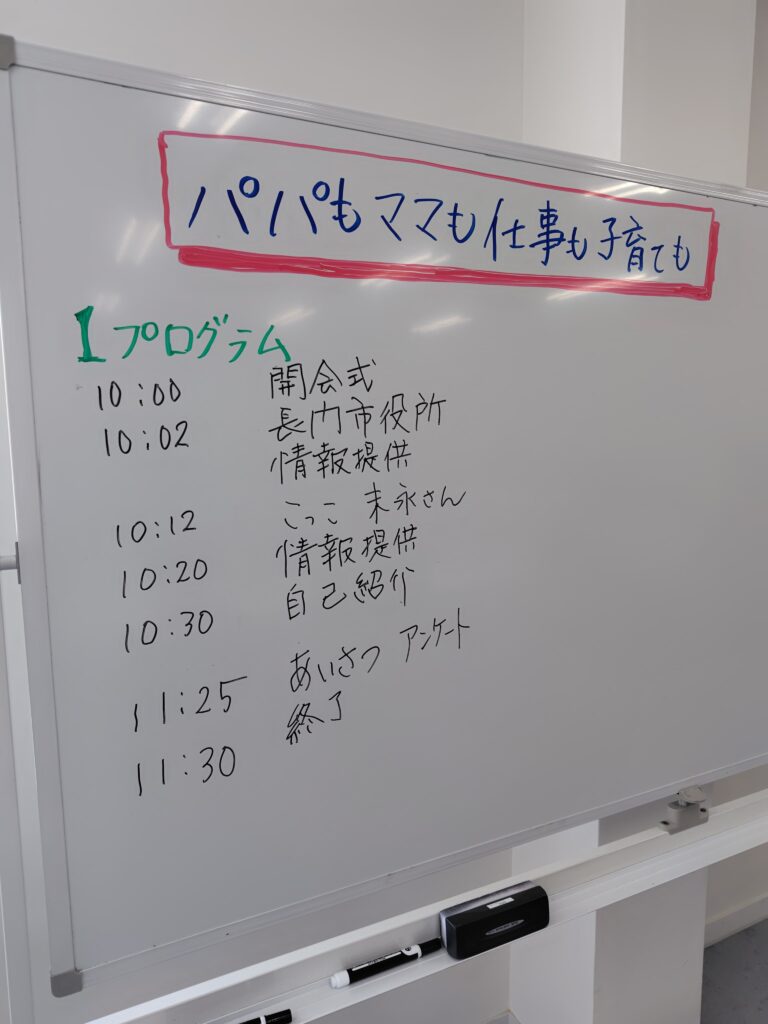 パパもママも仕事も子育ても
1 プログラム
10:00 開会式
10:02 長門市役所
情報提供
10:12 こっこ 末永さん
10:20 情報提供
10:30 自己紹介
11:25 あいさつ アンケート
11:30 終了